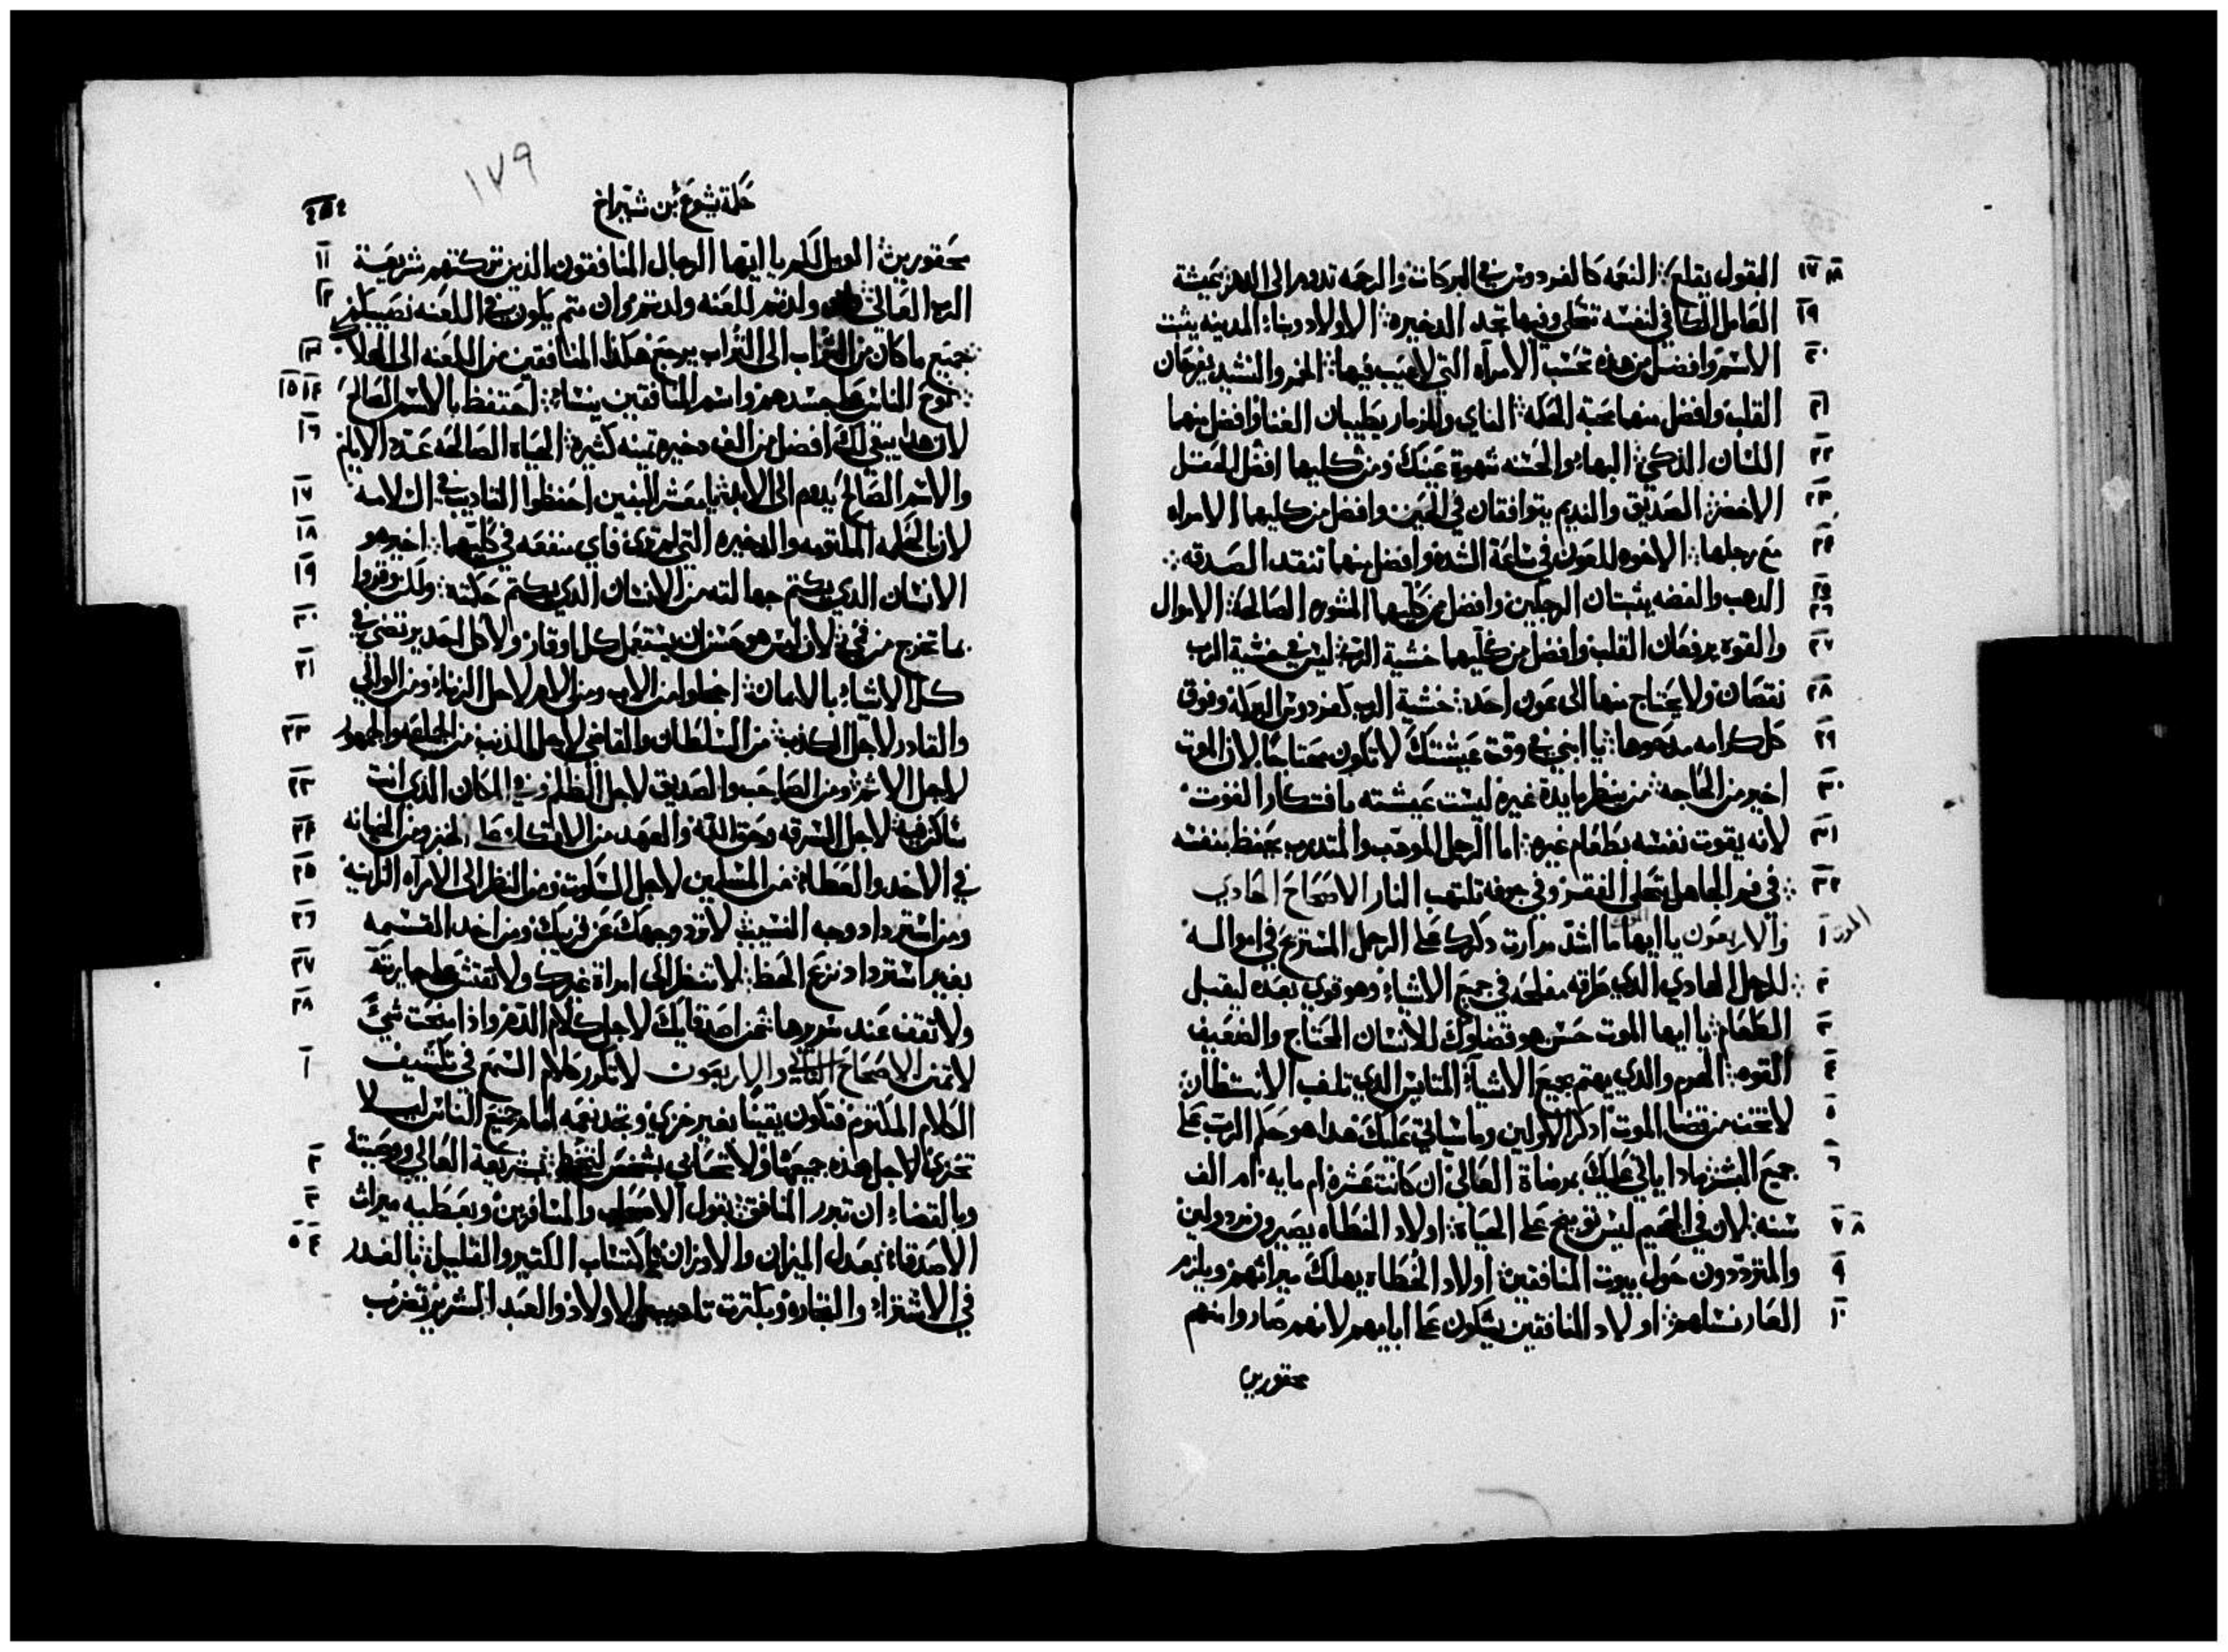 ١٧ ١٨ القول يقلع ⁘ النعمه كالفردوس في البركات والرحمه تدوم الى الدهر ⁘ عيشة
١٩ العامل المكافي لنفسه تحلى وفيها تجد الدخيره ⁘ الاولاد وبناء المدينه يثبت
٢٠ الاسم وافضل من هذه تحسب الامراه التي لا عيب فيها ⁘ الخمر والنشيد يفرحان
٢١ القلب وافضل منهما محبة الحكمه ⁘ الناي والمزمار يطيبان الغنا وافضل منهما
٢٢ اللسان الذكي ⁘ البهاء والحسنه شهوة عينك ومن كليهما افضل الحقل
٢٣ الاخضر ⁘ الصديق والنديم يتوافقان في الحين وافضل من كليهما الامراه
٢٤ مع رجلها ⁘ الاخوه للعون في ساعة الشده وافضل منهما تنقد الصدقه ⁘
٢٥ ٢٦ الدهب والفضه يثبتان الرجلين وافضل من كليهما المشوره الصالحه ⁘ الاموال
٢٧ والقوة يرفعان القلب وافضل من كليهما خشية الرب ⁘ ليس في خشية الرب
٢٨ نقصان ولا يحتاج منها الى عون احد ⁘ خشية الرب كفردوس البركه وفوق
٢٩ كل كرامه مدحوها ⁘ يا ابني في وقت عيشتك لا تكون محتاجا لان الموت
٣٠ اخير من الحاجه ⁘ من ينظر مايدة غيره ليست عيشته بافتكار القوت
٣١ لانه يقوت نفسه بطعام غيره ⁘ اما الرجل المودب والمتدرب يحفظ بنفسه
٣٢ ⁘ في فم الجاهل يتحلى الفقر وفي جوفه تلتهب النار الاصحاح الحادي
١ والاربعون يا ايها ما اشد مرارت دكرك على الرجل المستريح في امواله
٢ ⁘ للرجل الهادي الذي طرقه مفلحه في جميع الاشياء وهو قوي بعده ليقبل
٣ الطعام ⁘ يا ايها الموت حسن هو قضاوك للانسان المحتاج والضعيف
٤ القوه ⁘ الهرم والذي يهتم بجميع الاشياء المتايس الذي تلف الانتظار ⁘
٥ لا تخف من قضا الموت ادكر الاولين وما سياتي عليك هدا هو حكم الرب على
٦ جميع البشر مادا ياتي عليك بمرضاة العالي ان كانت عشره ام مايه ام الف
٧ ٨ سنه ⁘ لان في الجحيم ليس توبيخ على الحياة ⁘ اولاد الخطاه يصيرون مردولين
٩ والمترددون حول بيوت المنافقين ⁘ اولاد الخطاه يهلك ميراثهم ويلزم
١٠ العار نسلهم ⁘ اولاد المنافقين يشكون على ابايهم لانهم صاروا منهم
محقورين
١٧٩
حكمة يشوع بن شيراخ
١١ محقورين ⁘ الويل لكم يا ايها الرجال المنافقون الذين تركتهم شريعة
١٢ الرب العالي ولدتم للعنه ولدتم وان متم يكون في اللعنه نصيبكم
١٣ ⁘ جميع ما كان من التراب الى التراب يرجع هكذا المنافقين من اللعنه الى الهلاك
١٤ ١٥ ⁘ نوح الناس على جسدهم واسم المنافقين ينساء ⁘ احتفظ بالاسم الصالح
١٦ لان هدا يبقى لك افضل من الف دخيره تمينه كثيره ⁘ الحياه الصالحه عدة الايام
١٧ والاسم الصالح يدوم الى الابد ⁘ يا معشر البنين احفظوا التاديب في السلامه
١٨ لان الحكمه المكتومه والدخيره التي لم ترى فاي منفعه في كليهما ⁘ اخير هو
١٩ الانسان الذي يكتم جهالته من الانسان الذي يكتم حكمته ⁘ ولكن وقروا
٢٠ بما تخرج من في ⁘ لان ليس هو حسن ان يستعمل كل اوقار ولا كل احد يرتضي في
٢١ كل الاشياء بالامان ⁘ اخجلوا من الاب ومن الام لاجل الزناء ومن الوالي
٢٢ والقادر لاجل الكذب ⁘ من السلطان والقاضي لاجل الذنب من الجماعه والجمهور
٢٣ لاجل الاثم ⁘ ومن الصاحب والصديق لاجل الظلم وفي المكان الذي انت
٢٤ ساكن فيه ⁘ لاجل السرقه وحق الله والعهد من الاتكاء على الخبز ومن الخيانه
٢٥ في الاخد والعطاء ⁘ من المسلمين لاجل السكوت ومن النظر الى الامراه الزانيه
٢٦ ومن استرداد وجه النسيب ⁘ لا ترد وجهك عن قريبك ومن اخد القسمه
٢٧ بغير استرداد نزع الحظ ⁘ لا تنظر الى امراة غيرك ولا تفتش على جاريته
٢٨ ولا تقف عند سريرها ⁘ من اصدقايك لاجل كلام الدهر واذا منحت شي
١ لا تمنن الاصحاح الثاني والاربعون لا تكرر كلام السمع في تكشيف
الكلام المكتوم فتكون يقينا بغير خزي وتجد نعمه امام جميع الناس ليلا
٢ تخزى لاجل هذه جميعها ولا تحابي بشخص لتخطى ⁘ بشريعة العالي ووصيته
٣ وبالقضاء ان تبرر المنافق ⁘ بقول الاصحاب والمسافرين وبعطيه ميراث
٤ ٥ الاصدقاء ⁘ بعدل الميزان والاوزان باكتساب الكتير والقليل ⁘ بالغدر
في الاشتراء والتجاره وبكثرت تاديب الاولاد والعبد الشرير تضرب